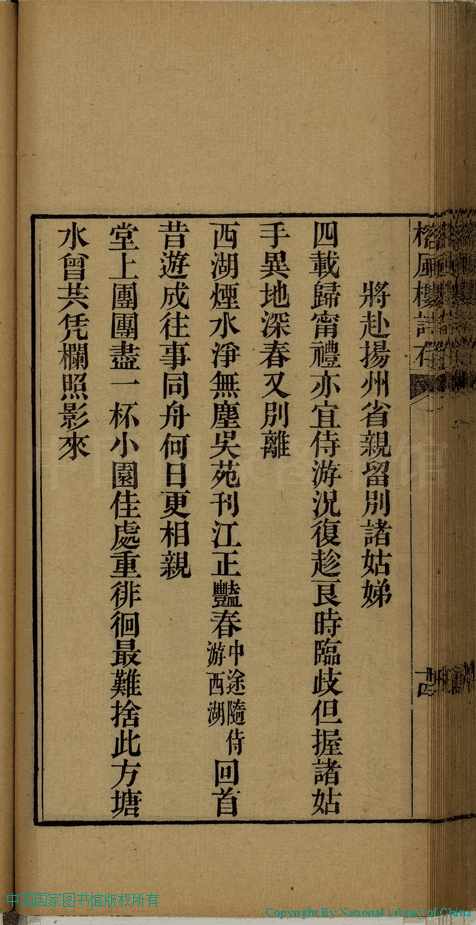 榕風樓詩存
十四
將赴揚州省親留別諸姑娣
四載歸甯禮亦宜侍游況復趁良時臨歧但握諸姑
手異地深春又別離
西湖煙水淨無塵吳苑刊江正豔春中途隨侍游西湖回首
昔遊成往事同舟何日更相親
堂上團團盡一杯小園佳處重徘徊最難捨此方塘
水曾共凭欄照影來
中國国家图书馆版权所有
Copyright By National Library of China